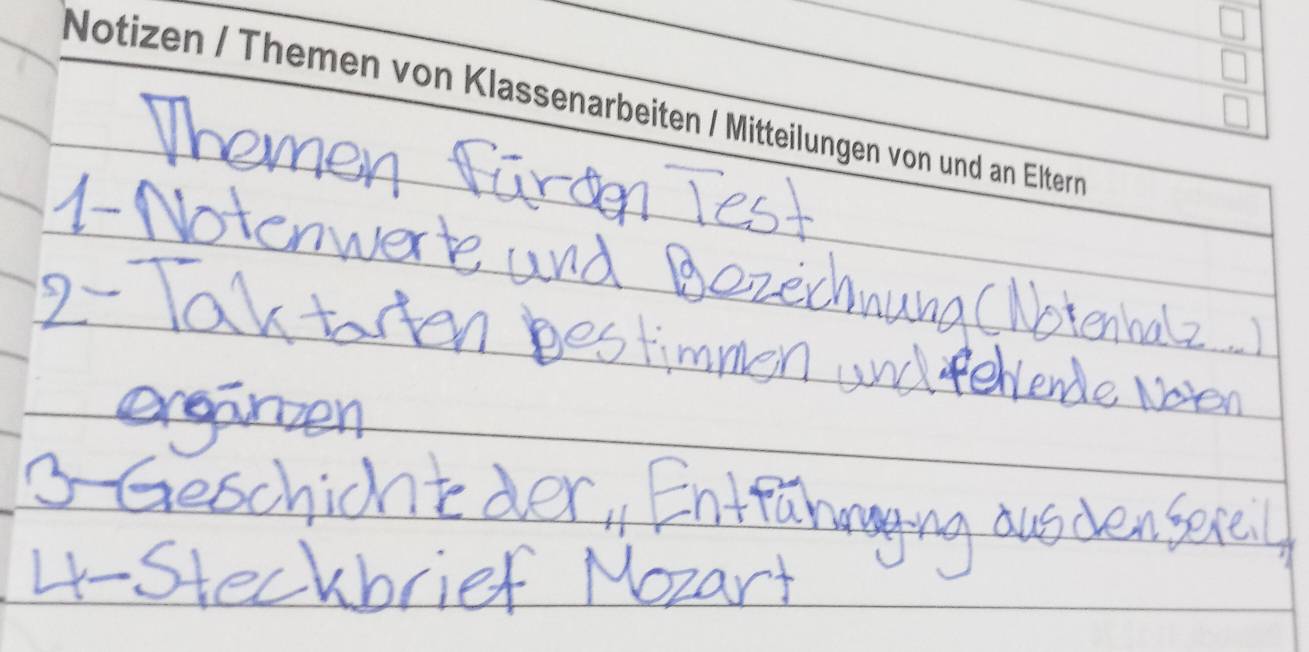 Notizen / Themen von Klassenarbeiten / Mitteilungen von und an Eltern
Themen für den Test
1-Notenwerte und Bezeichnung (Notenhalz...)
2-Taktarten bestimmen und fehlende Noten
ergänzen
3-Geschichte der „Entführung aus den Sereil"
4-Steckbrief Mozart